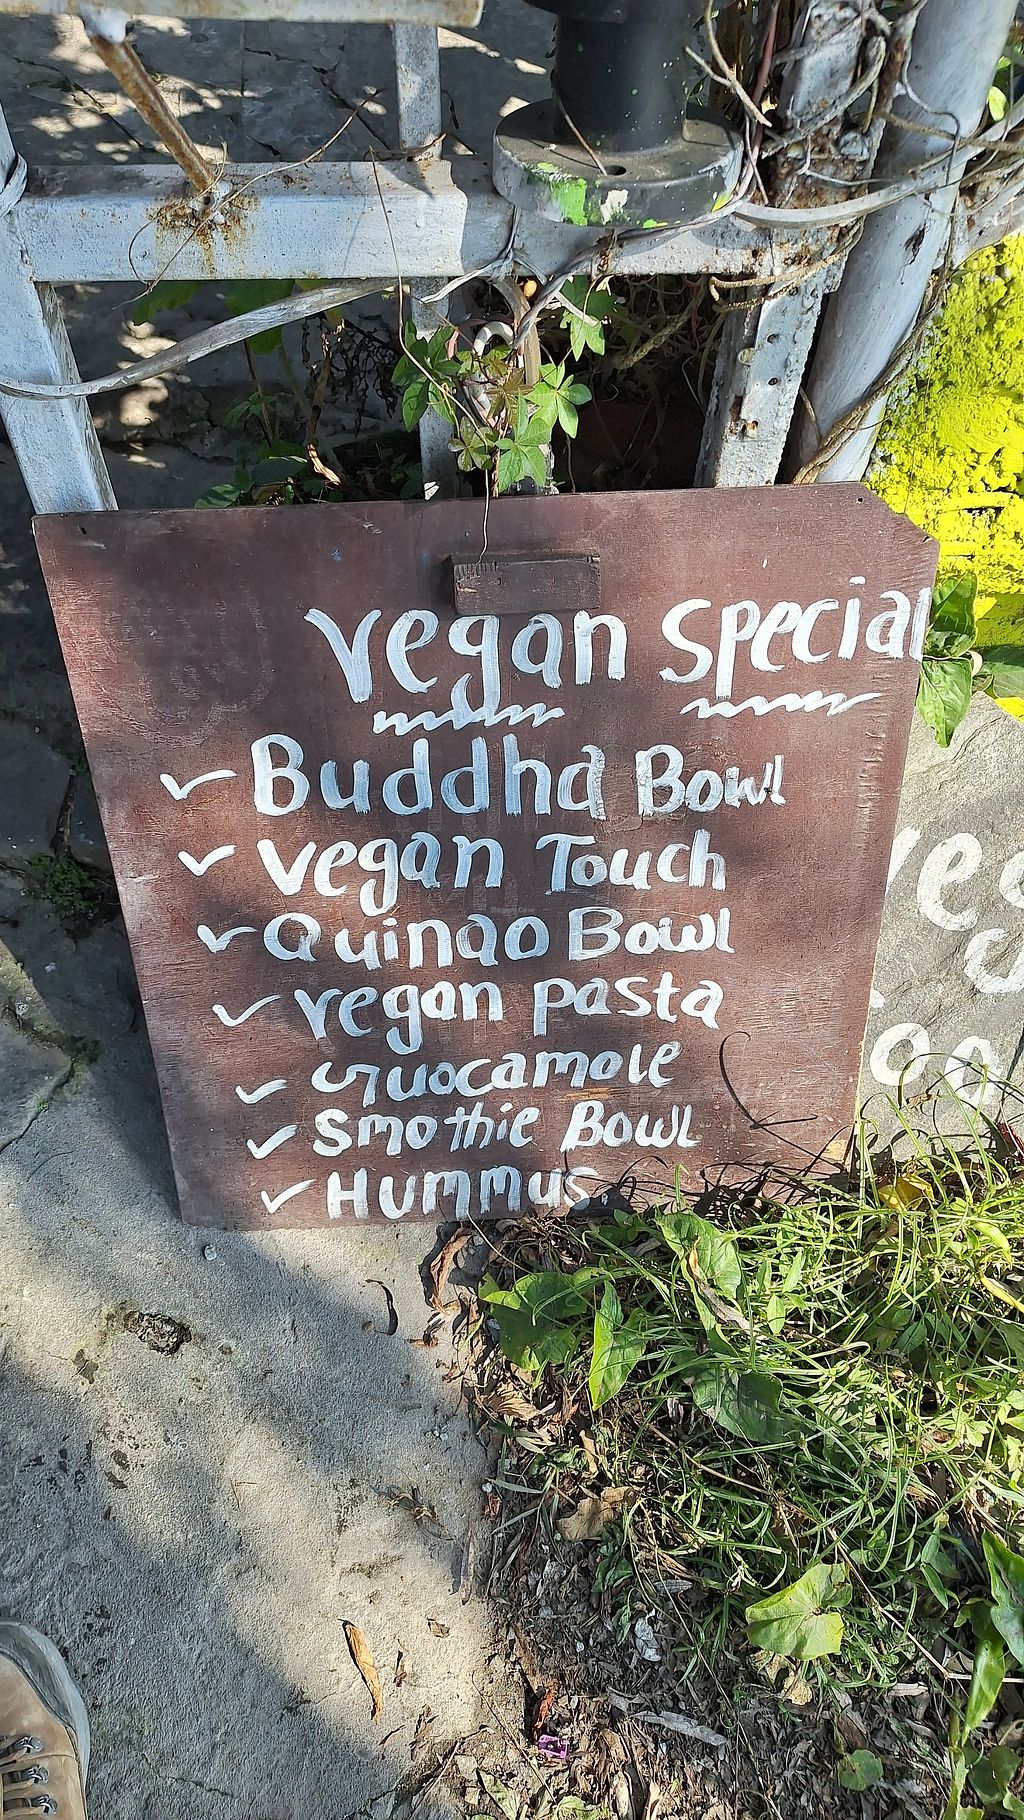 Vegan Special
✓ Buddha Bowl
✓ Vegan Touch
✓ Quinao Bowl
✓ Vegan pasta
✓ Guocamole
✓ Smothie Bowl
✓ Hummus